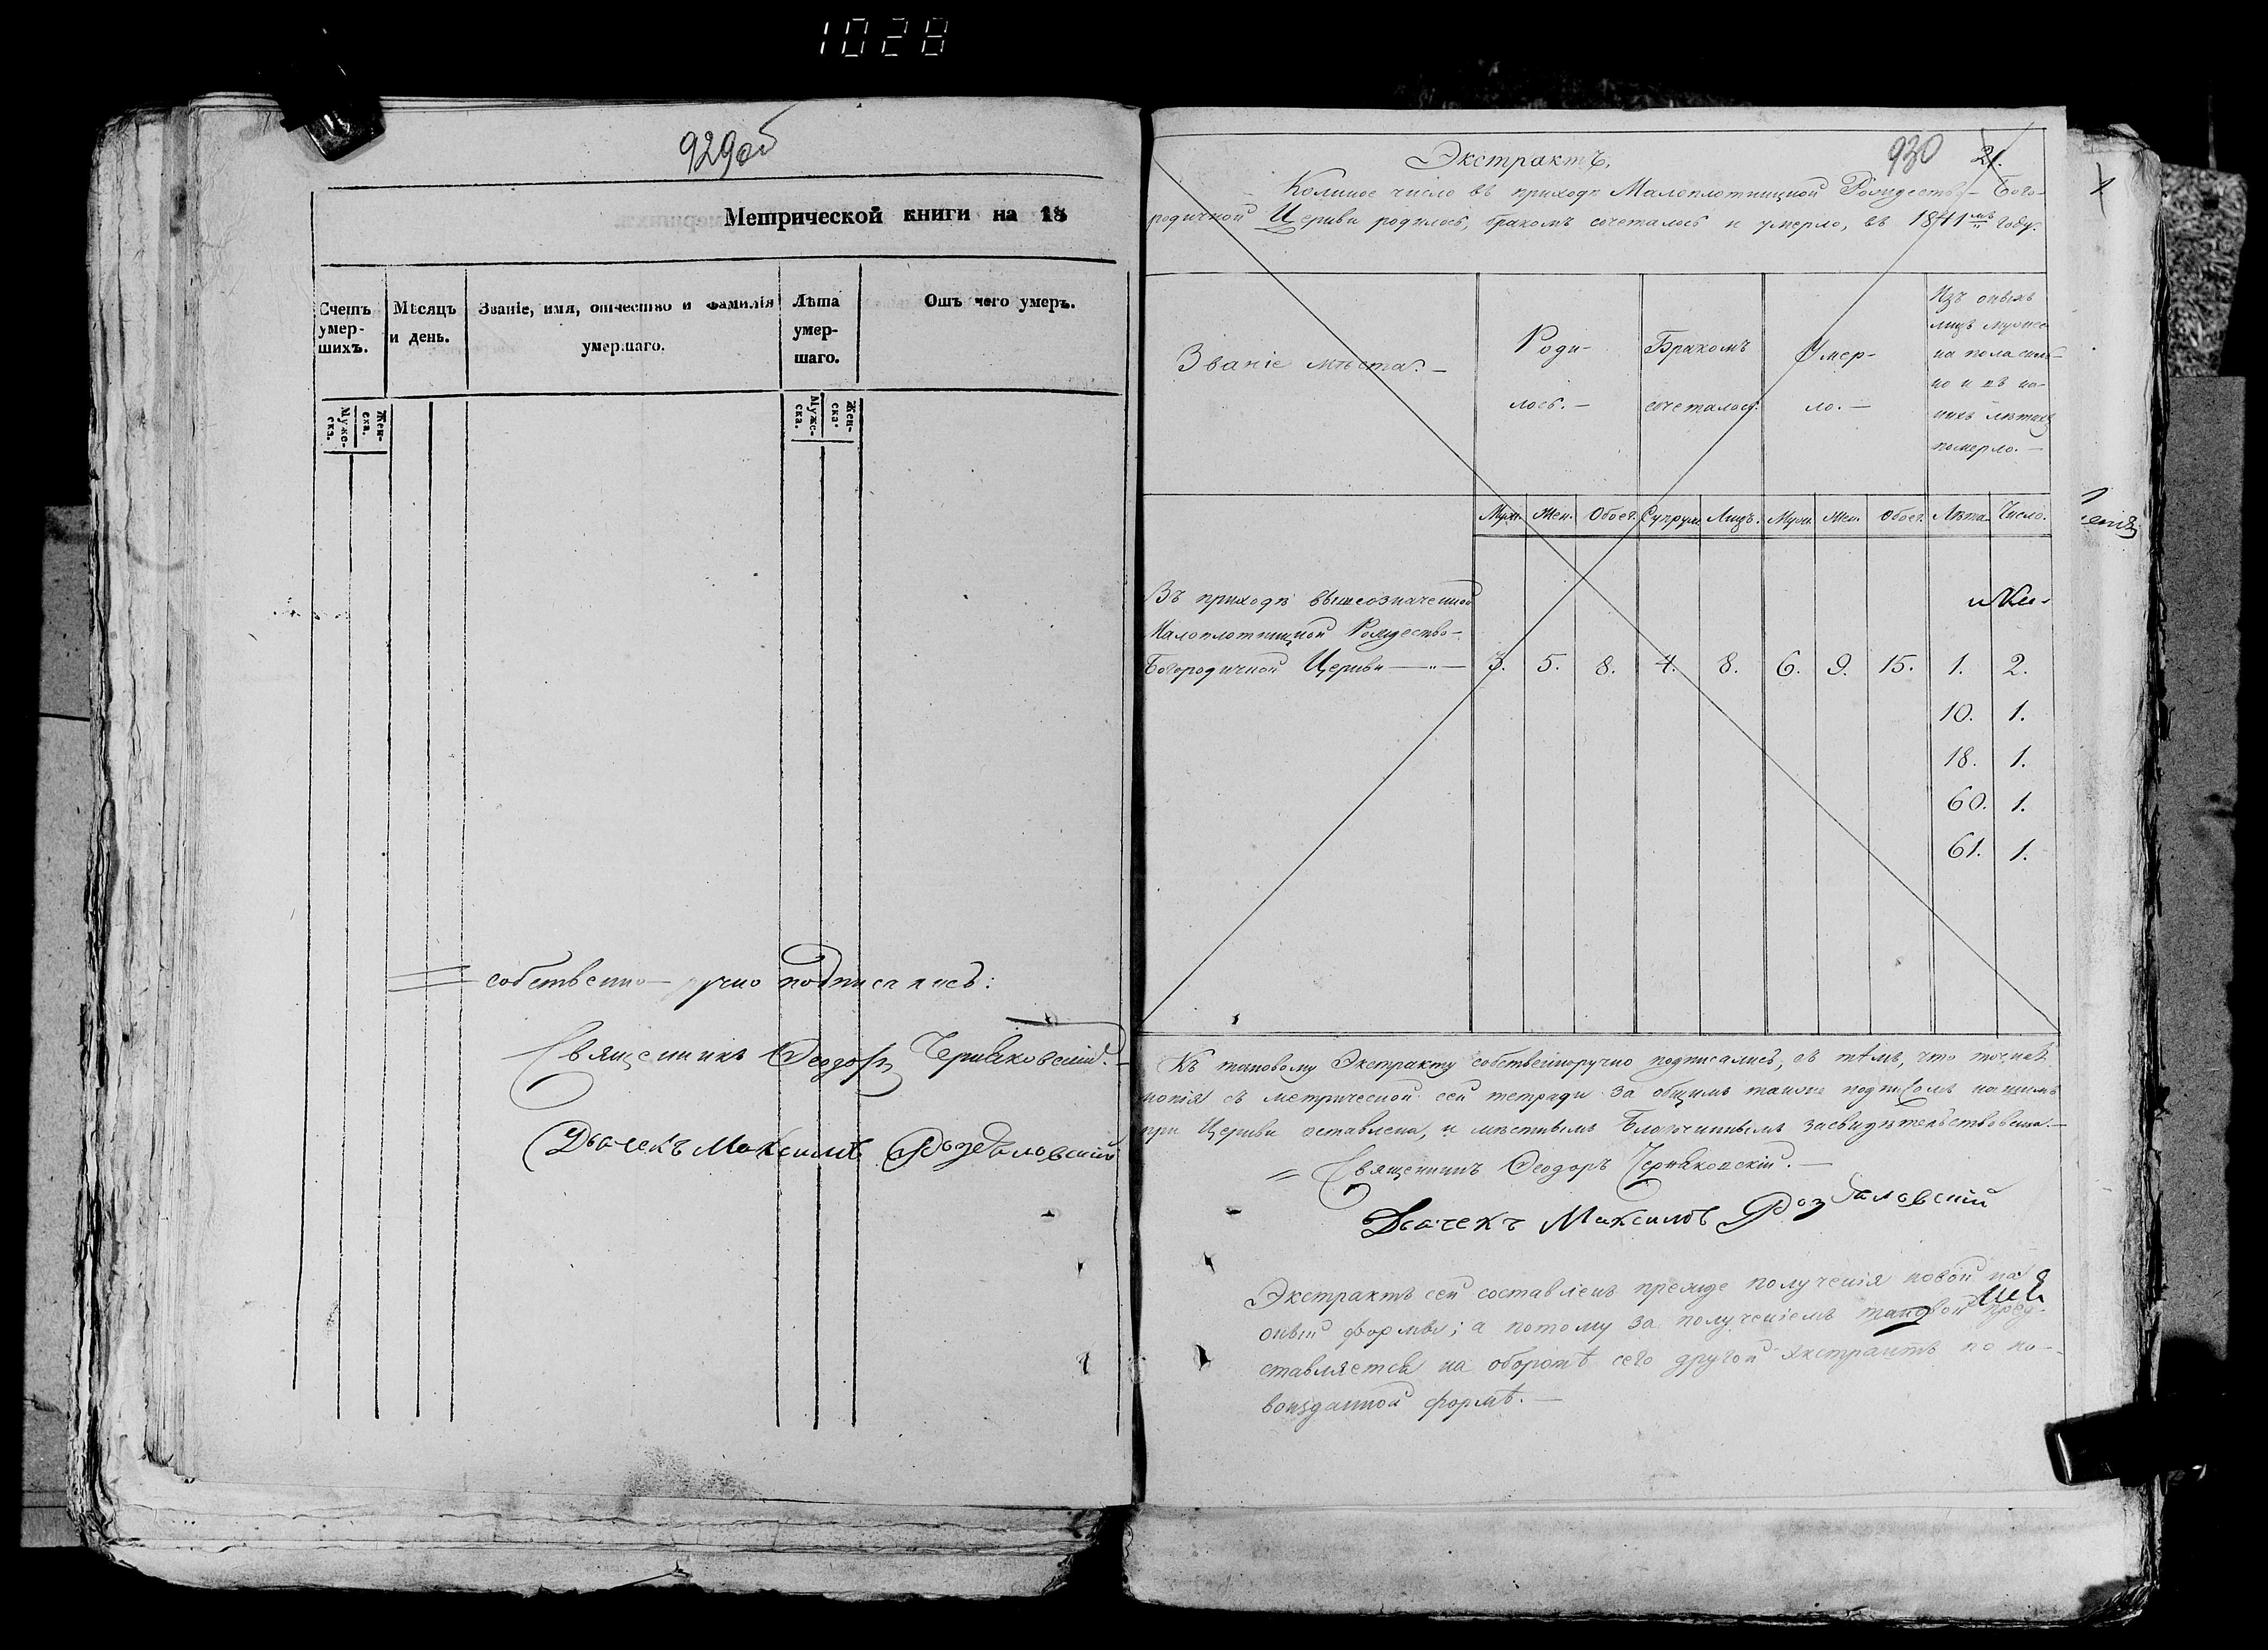 1028
929об
Метрической книги на 18
Счетъ умер-шихъ.
Мѣсяцъ и день.
Званіе, имя, отчество и фамилія умершаго.
Лѣта умер-шаго.
Отъ чего умеръ.
Муже-ска.
Жен-ска.
Муже-ска.
Жен-ска.
собственно-ручно подписались:
Священникъ Ѳеодоръ Черняховскій.
Дьячекъ Максимъ Роздаловскій
930 21.
Экстрактъ,
Коликое число въ приходѣ Малоплотницкой Рождество-Бого-
родичной Церкви родилось, бракомъ сочеталось и умерло, въ 1841мъ году.
Званіе мѣста.
Роди-
лось.
Бракомъ
сочеталось.
Умер-
ло.
Изъ оныхъ
лицъ мужес-
ка пола
но и въ ка-
кихъ лѣтахъ
померло.
Муж. Жен. Обоег. Супруж. Лицъ. Муж. Жен. Обоег. Лѣта. Число.
Въ приходѣ вышеозначенной
Малоплотницкой Рождество-
Богородичной Церкви 3. 5. 8. 4. 8. 6. 9. 15. 1. 2.
10. 1.
18. 1.
60. 1.
61. 1.
Къ таковому Экстракту собственноручно подписались, съ тѣмъ, что точная
копія съ метрической сей тетради за общимъ также подписомъ нашимъ
при Церкви оставлена, и мѣстнымъ Благочиннымъ засвидѣтельствована.
Священникъ Ѳеодоръ Черняховскій.
Дьячекъ Максимъ Роздаловскій
Экстрактъ сей составленъ прежде полученія новой на
оный формы; а потому за полученіемъ таковой пред-
ставляется на оборотѣ сего другой экстрактъ по но-
воизданной формѣ.